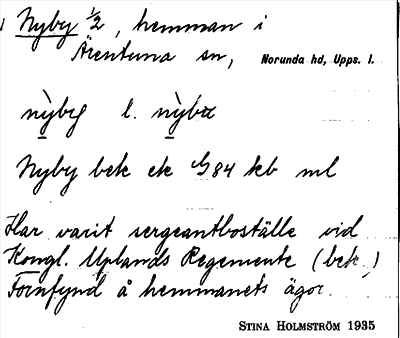 Nyby ½, hemman i
Ärentuna sn, Norunda hd, Upps. l.
nỳby l. nỳba
Nyby bek ek G84 kb ml
Har varit sergeantboställe vid
Kongl. Uplands Regemente (bek.)
Fornfynd å hemmanets ägor.
STINA HOLMSTRÖM 1935